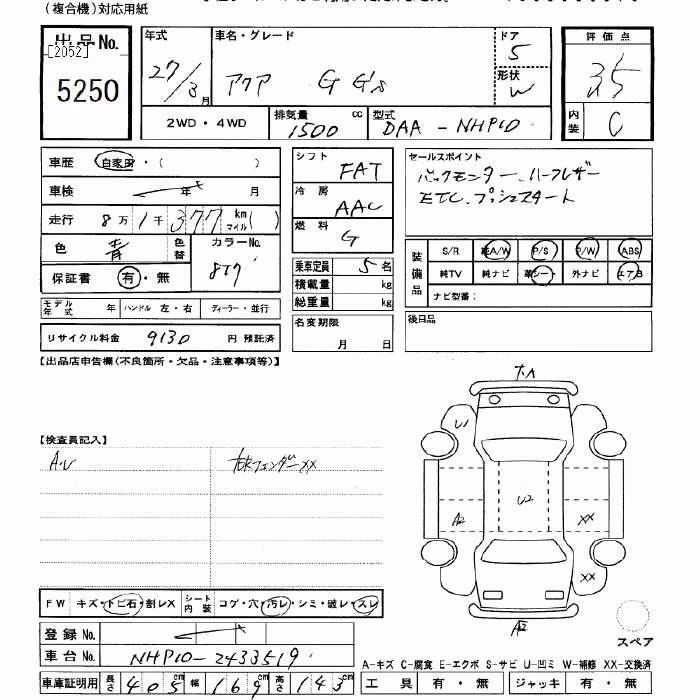 (複合機)対応用紙
出品No.
[2052]
5250
年式
27/3月
車名・グレード
アクア G G's
ドア
5
形状
W
評価点
3.5
内装
C
2WD・4WD
排気量
1500 cc
型式
DAA-NHP10
車歴 自家用・( )
車検 年 月
走行 8万1千377km マイル( )
色 青 色替
カラーNo.
8T7
保証書 有・無
モデル年式 年 ハンドル 左・右 ディーラー・並行
リサイクル料金 9130 円 預託済
シフト
FAT
冷房
AAC
燃料
G
乗車定員 5名
積載量 kg
総重量 kg
名変期限
月 日
セールスポイント
バックモニター、ハーフレザー
ETC、プッシュスタート
装備品
S/R 純A/W P/S P/W ABS
純TV 純ナビ 革シート 外ナビ エアB
ナビ型番:
後日品
【出品店申告欄(不良箇所・欠品・注意事項等)】
【検査員記入】
A・U
右Fフェンダー XX
U1
U2
A2
XX
XX
A2
スペア
FW キズ・トビ石・割レX シート内装 コゲ・穴・汚レ・シミ・破レ・スレ
登録No.
車台No. NHP10-2433519
車庫証明用 長さ 405cm 幅 169cm 高さ 143cm
A-キズ C-腐食 E-エクボ S-サビ U-凹ミ W-補修 XX-交換済
工具 有・無 ジャッキ 有・無